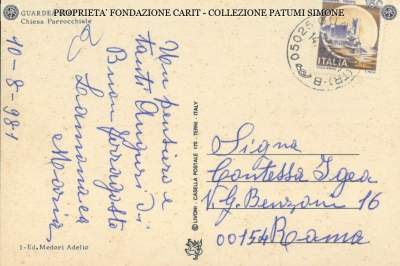 PROPRIETA' FONDAZIONE CARIT - COLLEZIONE PATUMI SIMONE
GUARDE
Chiesa Parrocchiale
10-8-981
Un pensiero e
tanti Auguri di
Buon ferragosto
Maria
1-Ed. Medori Adelio
© LIVONI - CASELLA POSTALE 175 - TERNI - ITALY
05025
(TR)-B
ITALIA
Signa
Contessa Igea
V. G. Benzoni 16
00154 Roma